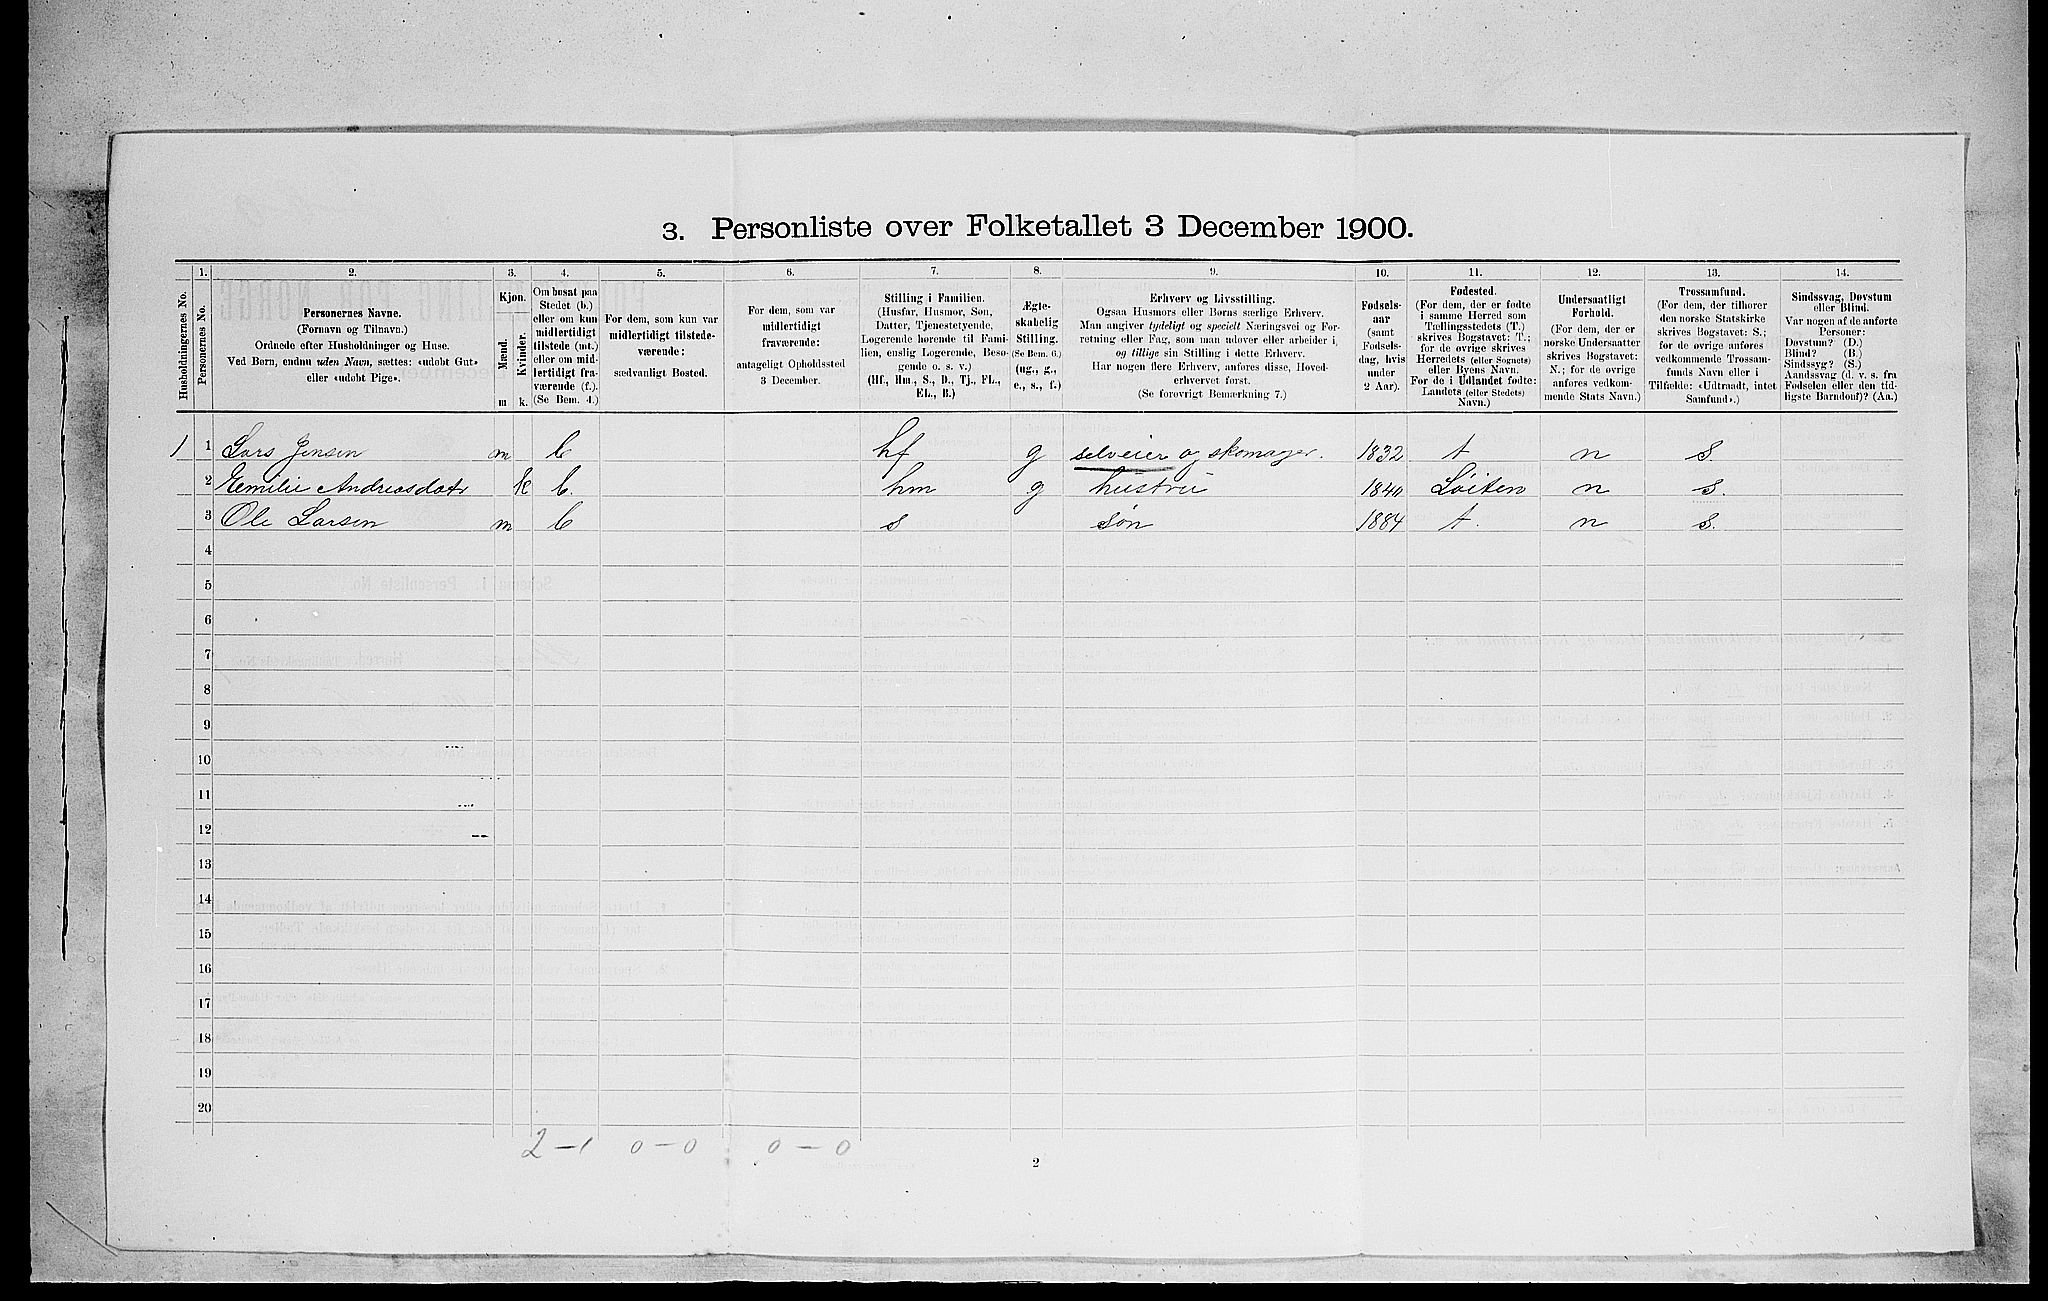 3. Personliste over Folketallet 3 December 1900.
1. 2. 3. 4. 5. 6. 7. 8. 9. 10. 11. 12. 13. 14.
Husholdningernes No.
Personernes No.
Personernes Navne.
(Fornavn og Tilnavn.)
Ordnede efter Husholdninger og Huse.
Ved Børn, endnu uden Navn, sættes: «udøbt Gut»
eller «udøbt Pige».
Kjøn.
Mænd.
Kvinder.
m k.
Om bosat paa
Stedet (b.)
eller om kun
midlertidigt
tilstede (mt.)
eller om mid-
lertidigt fra-
værende (f.).
(Se Bem. 4.)
For dem, som kun var
midlertidigt tilstede-
værende:
sædvanligt Bosted.
For dem, som var
midlertidigt
fraværende:
antageligt Opholdssted
3 December.
Stilling i Familien.
(Husfar, Husmor, Søn,
Datter, Tjenestetyende,
Logerende hørende til Fami-
lien, enslig Logerende, Besø-
gende o. s. v.)
(Hf., Hm., S., D., Tj., FL.,
EL., B.)
Ægte-
skabelig
Stilling.
(Se Bem. 6.)
(ug., g.,
e., s., f.)
Erhverv og Livsstilling.
Ogsaa Husmors eller Børns særlige Erhverv.
Man angiver tydeligt og specielt Næringsvei og For-
retning eller Fag, som man udøver eller arbeider i,
og tillige sin Stilling i dette Erhverv.
Har nogen flere Erhverv, anføres disse, Hoved-
erhvervet først.
(Se forøvrigt Bemærkning 7.)
Fødsels-
aar
(samt
Fødsels-
dag, hvis
under
2 Aar).
Fødested.
(For dem, der er fødte
i samme Herred som
Tællingsstedets (T.)
skrives Bogstavet: T.;
for de øvrige skrives
Herredets (eller Sognets)
eller Byens Navn.
For de i Udlandet fødte:
Landets (eller Stedets)
Navn.)
Undersaatligt
Forhold.
(For dem, der er
norske Undersaatter
skrives Bogstavet:
N.; for de øvrige
anføres vedkom-
mende Stats Navn.)
Trossamfund.
(For dem, der tilhører
den norske Statskirke
skrives Bogstavet: S.;
for de øvrige anføres
vedkommende Trossam-
funds Navn eller i
Tilfælde: «Udtraadt, intet
Samfund».)
Sindssvag, Døvstum
eller Blind.
Var nogen af de anførte
Personer:
Døvstum? (D.)
Blind? (B.)
Sindssyg? (S.)
Aandssvag (d. v. s. fra
Fødselen eller den tid-
ligste Barndom)? (Aa.)
1 1 Lars Jensen m b hf g selveier og skomager. 1832 t n s.
2 Emilie Andreasdatr k b. hm g hustru 1840 Løiten n s.
3 Ole Larsen m b s søn 1884 t. n s.
4
5
6
7
8
9
10
11
12
13
14
15
16
17
18
19
20
2 - 1 0 - 0 0 - 0
2